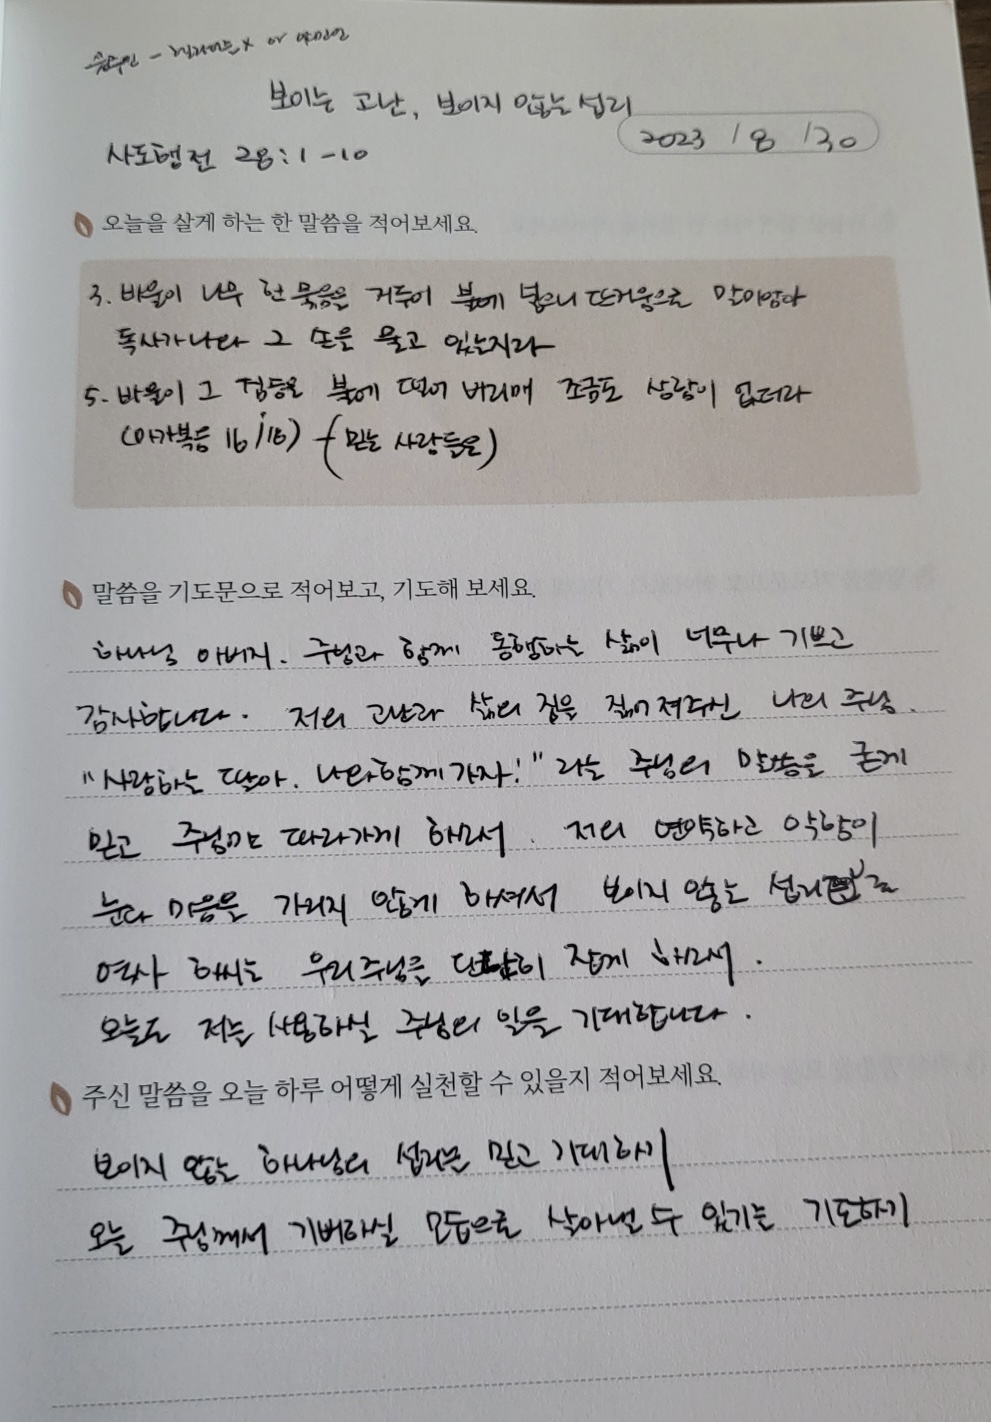 원주민 - 헬라인들x or 야만인
보이는 고난, 보이지 않는 섭리
2023 / 8 / 30
사도행전 28:1-10
오늘을 살게 하는 한 말씀을 적어보세요.
3. 바울이 나무 한 묶음을 거두어 불에 넣으니 뜨거움으로 말미암아
독사가 나와 그 손을 물고 있는지라
5. 바울이 그 짐승을 불에 떨어 버리매 조금도 상함이 없더라
(마가복음 16;18) - (믿는 사람들은)
말씀을 기도문으로 적어보고, 기도해 보세요.
하나님 아버지. 주님과 함께 동행하는 삶이 너무나 기쁘고
감사합니다. 저의 고난과 삶의 짐을 짊어져주신 나의 주님.
"사랑하는 딸아. 나와함께가자!" 라는 주님의 말씀을 굳게
믿고 주님만 따라가게 하소서. 저의 연약하고 악함이
눈과 마음을 가리지 않게 하셔서 보이지 않는 섭리로
역사 하시는 우리주님을 단단히 잡게 하소서.
오늘도 저를 사용하실 주님의 일을 기대합니다.
주신 말씀을 오늘 하루 어떻게 실천할 수 있을지 적어보세요.
보이지 않는 하나님의 섭리를 믿고 기대하기
오늘 주님께서 기뻐하실 모습으로 살아낼 수 있기를 기도하기